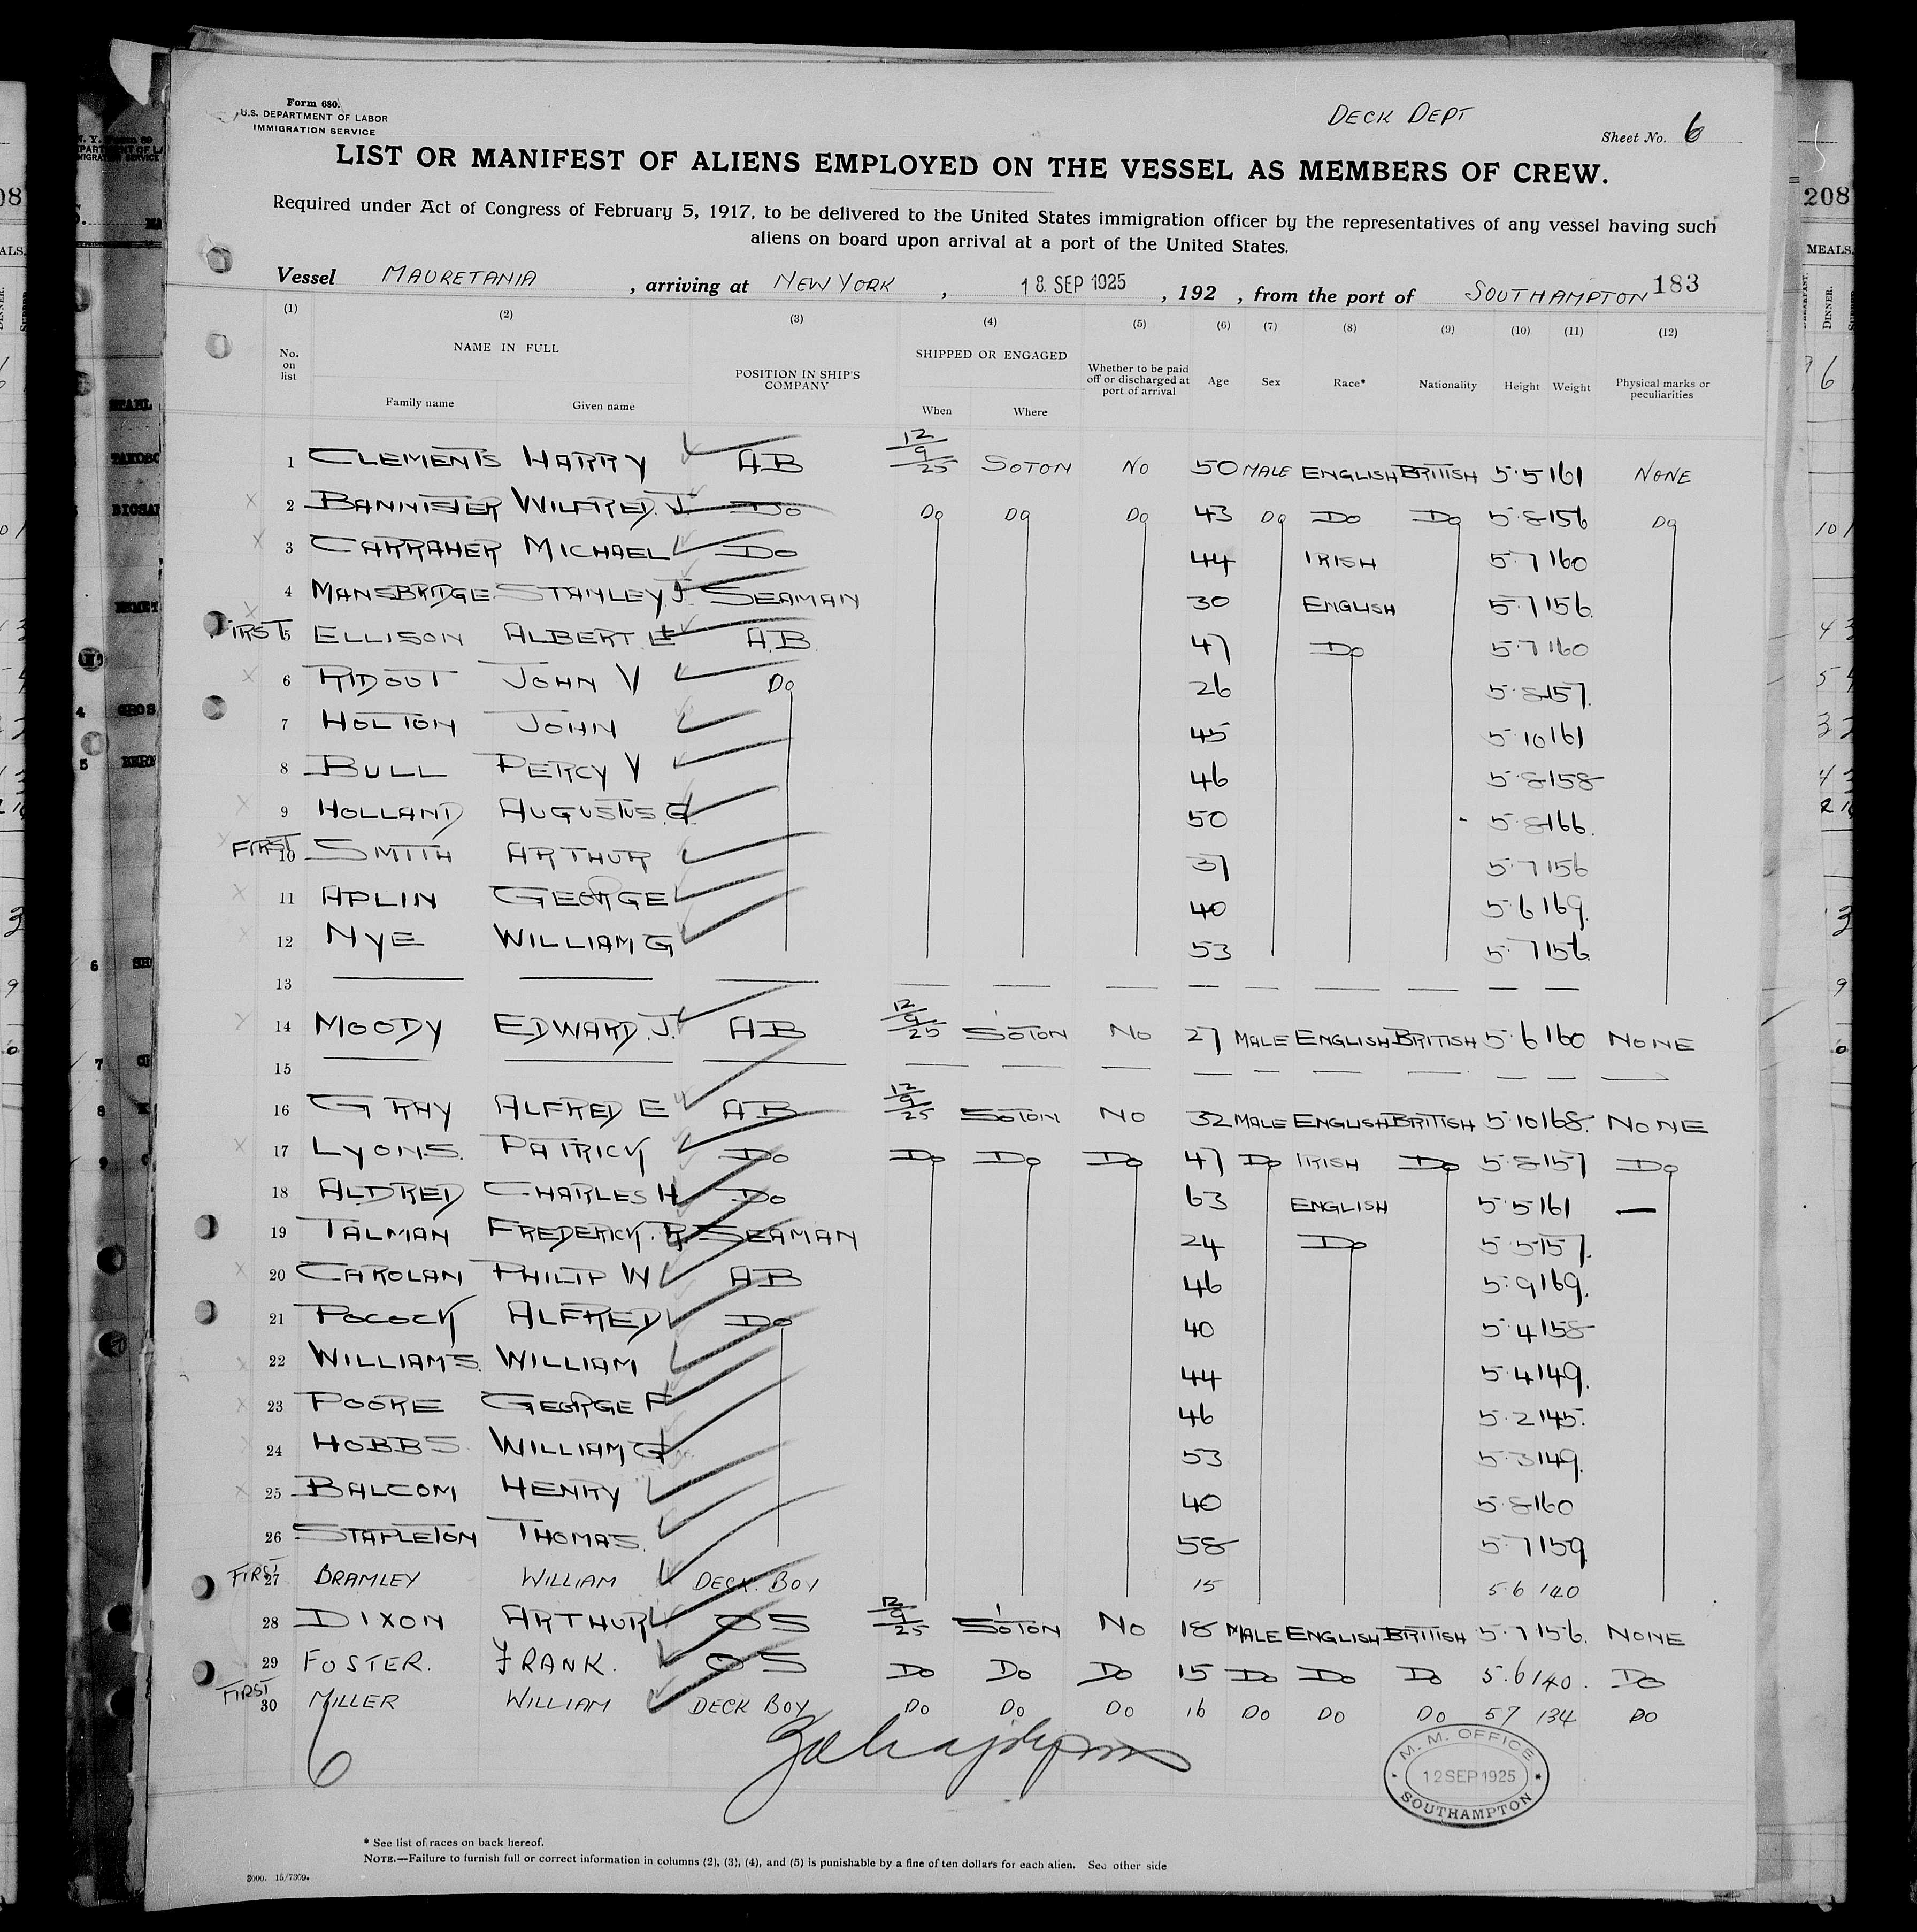 Form 680.
U.S. DEPARTMENT OF LABOR
IMMIGRATION SERVICE
DECK DEPT
Sheet No. 6
LIST OR MANIFEST OF ALIENS EMPLOYED ON THE VESSEL AS MEMBERS OF CREW.
Required under Act of Congress of February 5, 1917, to be delivered to the United States immigration officer by the representatives of any vessel having such
aliens on board upon arrival at a port of the United States.
Vessel MAURETANIA , arriving at NEW YORK , 18 SEP 1925 , 192 , from the port of SOUTHAMPTON 183
(1) (2) (3) (4) (5) (6) (7) (8) (9) (10) (11) (12)
No. on list NAME IN FULL Family name Given name POSITION IN SHIP'S COMPANY SHIPPED OR ENGAGED When Where Whether to be paid off or discharged at port of arrival Age Sex Race* Nationality Height Weight Physical marks or peculiarities
1 CLEMENTS HARRY AB 12/9/25 SOTON NO 50 MALE ENGLISH BRITISH 5.5 161 NONE
2 BANNISTER WILFRED.J. Do Do Do Do 43 Do Do Do 5.8 156 Do
3 CARRAHER MICHAEL Do 44 IRISH 5.7 160
4 MANSBRIDGE STANLEY J SEAMAN 30 ENGLISH 5.7 156.
FIRST 5 ELLISON ALBERT E A.B. 47 Do 5.7 160
6 RIDOUT JOHN V Do 26 5.8 157.
7 HOLTON JOHN 45 5.10 161
8 BULL PERCY V 46 5.8 158
9 HOLLAND AUGUSTUS.G 50 5.8 166.
FIRST 10 SMITH ARTHUR 37 5.7 156
11 APLIN GEORGE 40 5.6 169.
12 NYE WILLIAM G 53 5.7 156.
13
14 MOODY EDWARD.J. AB 12/9/25 SOTON NO 27 MALE ENGLISH BRITISH 5.6 160 NONE
15
16 GRAY ALFRED E AB 12/9/25 SOTON NO 32 MALE ENGLISH BRITISH 5.10 168. NONE
17 LYONS. PATRICK Do Do Do Do 47 Do IRISH Do 5.8 157 Do
18 ALDRED CHARLES H Do 63 ENGLISH 5.5 161 —
19 TALMAN FREDERICK.R. SEAMAN 24 Do 5.5 157.
20 CAROLAN PHILIP W AB 46 5.9 169.
21 POCOCK ALFRED Do 40 5.4 158
22 WILLIAMS. WILLIAM 44 5.4 149.
23 POORE GEORGE F 46 5.2 145.
24 HOBBS WILLIAM G 53 5.3 149.
25 BALCOM HENRY 40 5.8 160
26 STAPLETON THOMAS. 58 5.7 159
FIRST 27 BRAMLEY WILLIAM DECK. BOY 15 5.6 140
28 DIXON ARTHUR OS 12/9/25 SOTON NO 18 MALE ENGLISH BRITISH 5.7 156. NONE
29 FOSTER. FRANK. OS Do Do Do 15 Do Do Do 5.6 140. Do
FIRST 30 MILLER WILLIAM DECK BOY Do Do Do 16 Do Do Do 57 134 Do
6
M. M. OFFICE
12 SEP 1925
SOUTHAMPTON
* See list of races on back hereof.
NOTE.—Failure to furnish full or correct information in columns (2), (3), (4), and (5) is punishable by a fine of ten dollars for each alien. See other side
3000. 15/7309.
208
MEALS.
DINNER.